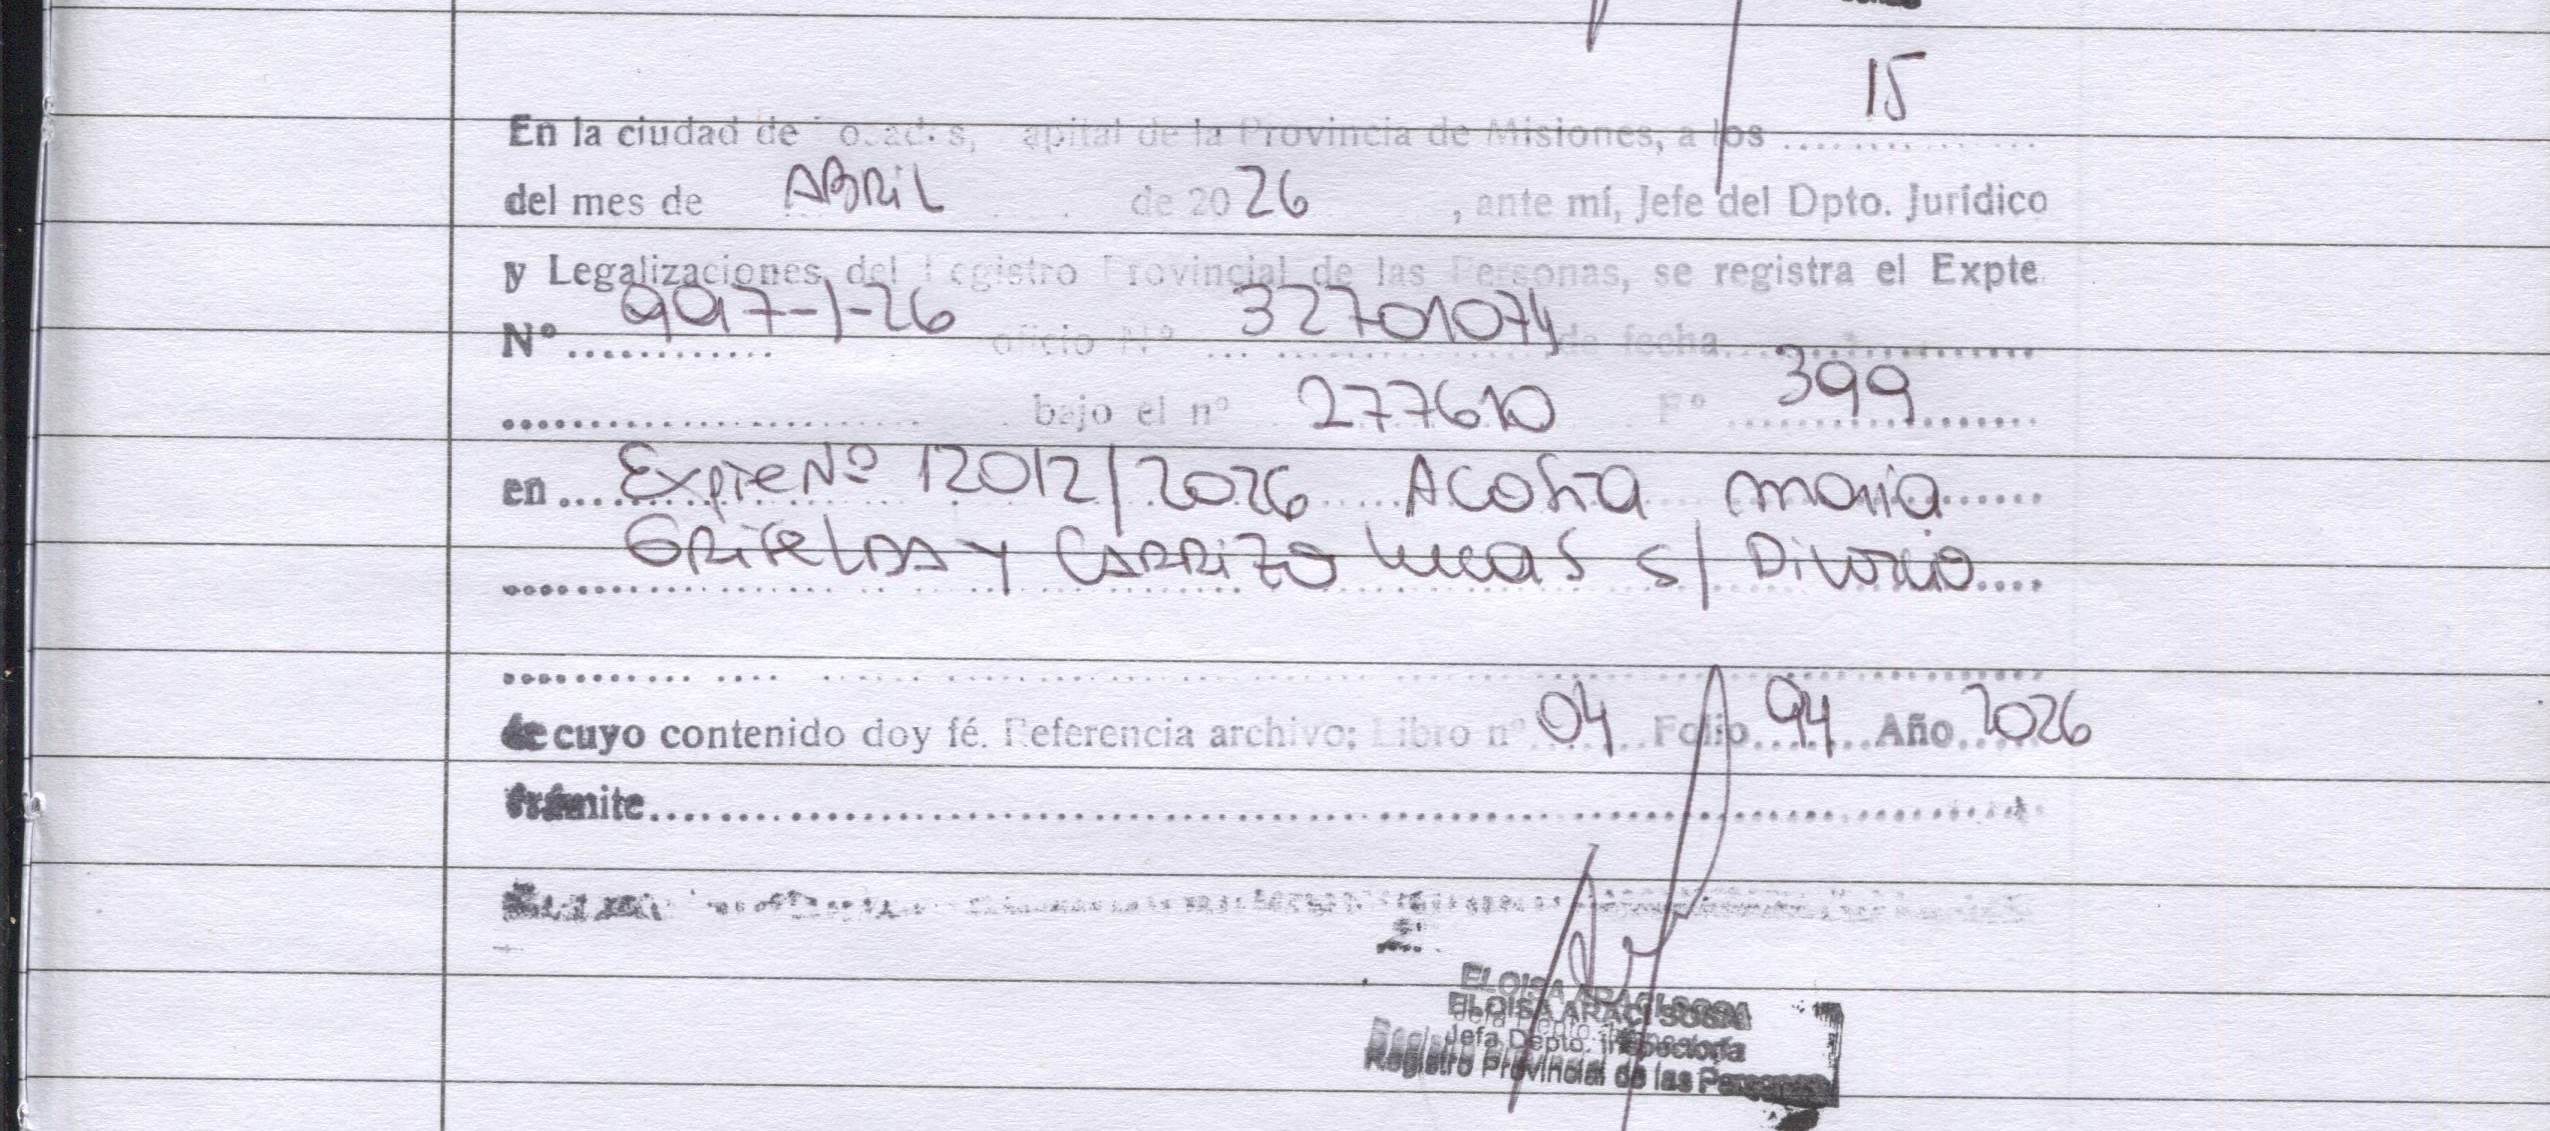 15
En la ciudad de Posadas, Capital de la Provincia de Misiones, a los ...............
del mes de ABRIL de 2026 , ante mí, Jefe del Dpto. Jurídico
y Legalizaciones del Registro Provincial de las Personas, se registra el Expte
Nº 9917-1-26 oficio Nº 32701074 de fecha...............
............... bajo el nº 277610 Fº 399
en Expte Nº 12012/2026 Acosta Maria
Griselda y Carrizo Lucas s/ Divorcio
de cuyo contenido doy fé. Referencia archivo: Libro nº 04 Folio 94 Año 2026
trámite...............
ELOISA ARACI SOSA
Jefa Depto. Inspectoría
Registro Provincial de las Personas